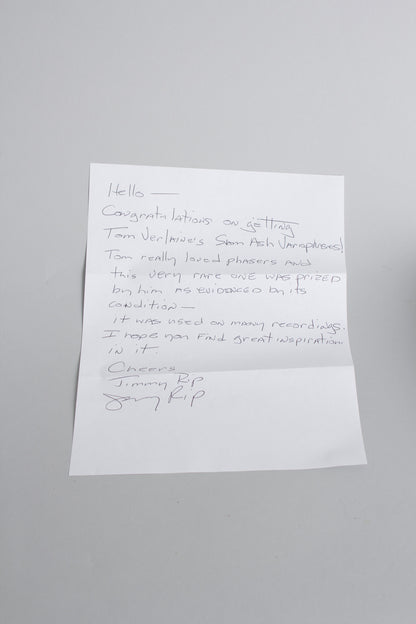 Hello —
Congratulations on getting
Tom Verlaine's Sam Ash Varaphases!
Tom really loved phasers and
this very rare one was prized
by him as evidenced by its
condition —
it was used on many recordings.
I hope you find great inspiration
in it.
Cheers
Jimmy Rip
Jimmy Rip